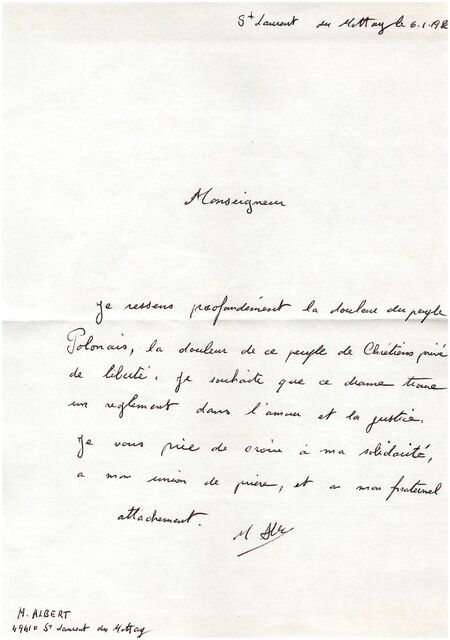 St Laurent du Mottay le 6.1.1982
Monseigneur
Je ressens profondément la douleur du peuple
Polonais, la douleur de ce peuple de Chrétiens privé
de liberté. Je souhaite que ce drame trouve
un reglement dans l'amour et la justice.
Je vous prie de croire à ma solidarité,
a mon union de prière, et a mon fraternel
attachement.
M
M. ALBERT
49410 St Laurent du Mottay